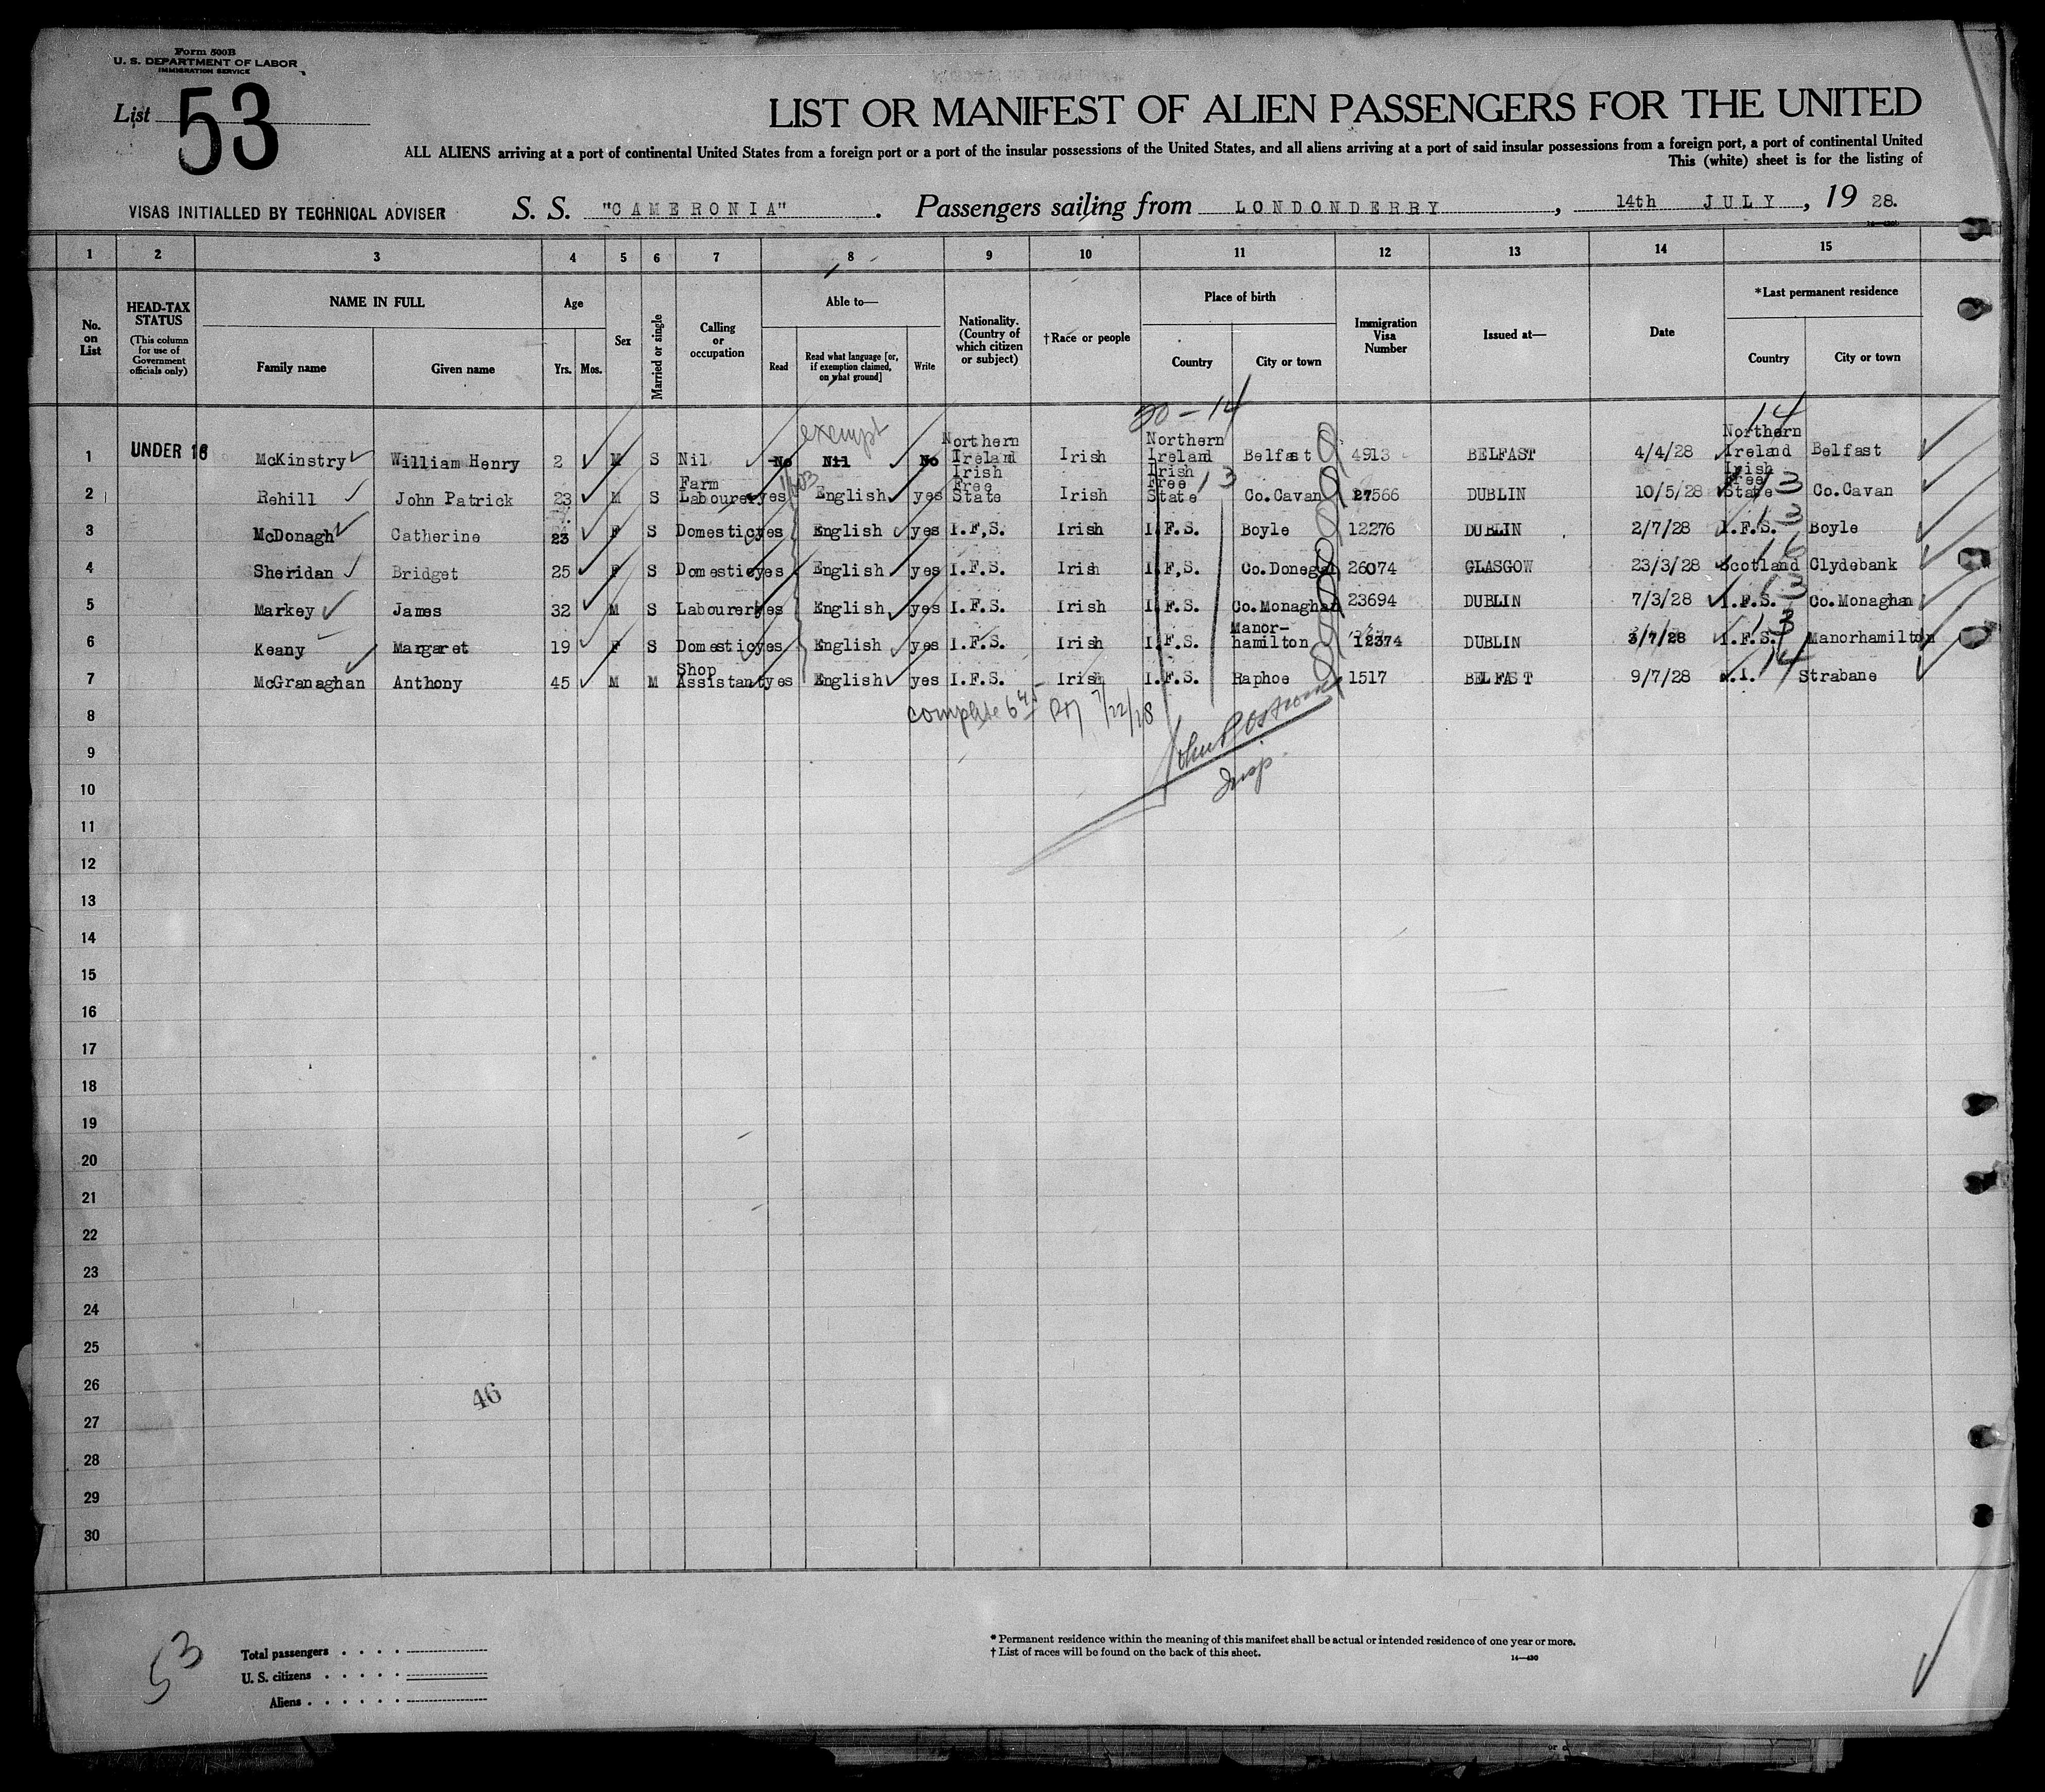 Form 500B
U. S. DEPARTMENT OF LABOR
IMMIGRATION SERVICE
List 53
LIST OR MANIFEST OF ALIEN PASSENGERS FOR THE UNITED
ALL ALIENS arriving at a port of continental United States from a foreign port or a port of the insular possessions of the United States, and all aliens arriving at a port of said insular possessions from a foreign port, a port of continental United
This (white) sheet is for the listing of
VISAS INITIALLED BY TECHNICAL ADVISER S. S. "CAMERONIA" . Passengers sailing from LONDONDERRY , 14th JULY , 19 28.
1 2 3 4 5 6 7 8 9 10 11 12 13 14 15
No. on List
HEAD-TAX STATUS
(This column for use of Government officials only)
NAME IN FULL
Family name Given name
Age
Yrs. Mos.
Sex
Married or single
Calling or occupation
Able to—
Read
Read what language [or, if exemption claimed, on what ground]
Write
Nationality. (Country of which citizen or subject)
†Race or people
Place of birth
Country City or town
Immigration Visa Number
Issued at—
Date
*Last permanent residence
Country City or town
20-14 14
exempt
1 UNDER 16 McKinstry William Henry 2 M S Nil No Nil No Northern Ireland Irish Northern Ireland Belfast 4913 BELFAST 4/4/28 Northern Ireland Belfast
2 Rehill John Patrick 23 M S Farm Labourer yes English yes Irish Free State Irish Irish Free State 13 Co.Cavan 27566 DUBLIN 10/5/28 Irish Free State 13 Co.Cavan
3 McDonagh Catherine 23 F S Domestic yes English yes I.F,S. Irish I.F.S. Boyle 12276 DUBLIN 2/7/28 I.F.S. 13 Boyle
4 Sheridan Bridget 25 F S Domestic yes English yes I.F.S. Irish I.F,S. Co.Donegal 26074 GLASGOW 23/3/28 Scotland 16 Clydebank
5 Markey James 32 M S Labourer yes English yes I.F.S. Irish I.F.S. Co.Monaghan 23694 DUBLIN 7/3/28 I.F.S. 13 Co.Monaghan
6 Keany Margaret 19 F S Domestic yes English yes I.F.S. Irish I.F.S. Manor-hamilton 12374 DUBLIN 3/7/28 I.F.S. 13 Manorhamilton
7 McGranaghan Anthony 45 M M Shop Assistant yes English yes I.F.S. Irish I.F.S. Raphoe 1517 BELFAST 9/7/28 N.I. 14 Strabane
8 complete 6 45 PM 7/22/28
9
Insp.
10
11
12
13
14
15
16
17
18
19
20
21
22
23
24
25
26 46
27
28
29
30
53
Total passengers . . . .
U. S. citizens . . . . .
Aliens . . . . . .
* Permanent residence within the meaning of this manifest shall be actual or intended residence of one year or more.
† List of races will be found on the back of this sheet.
14—430